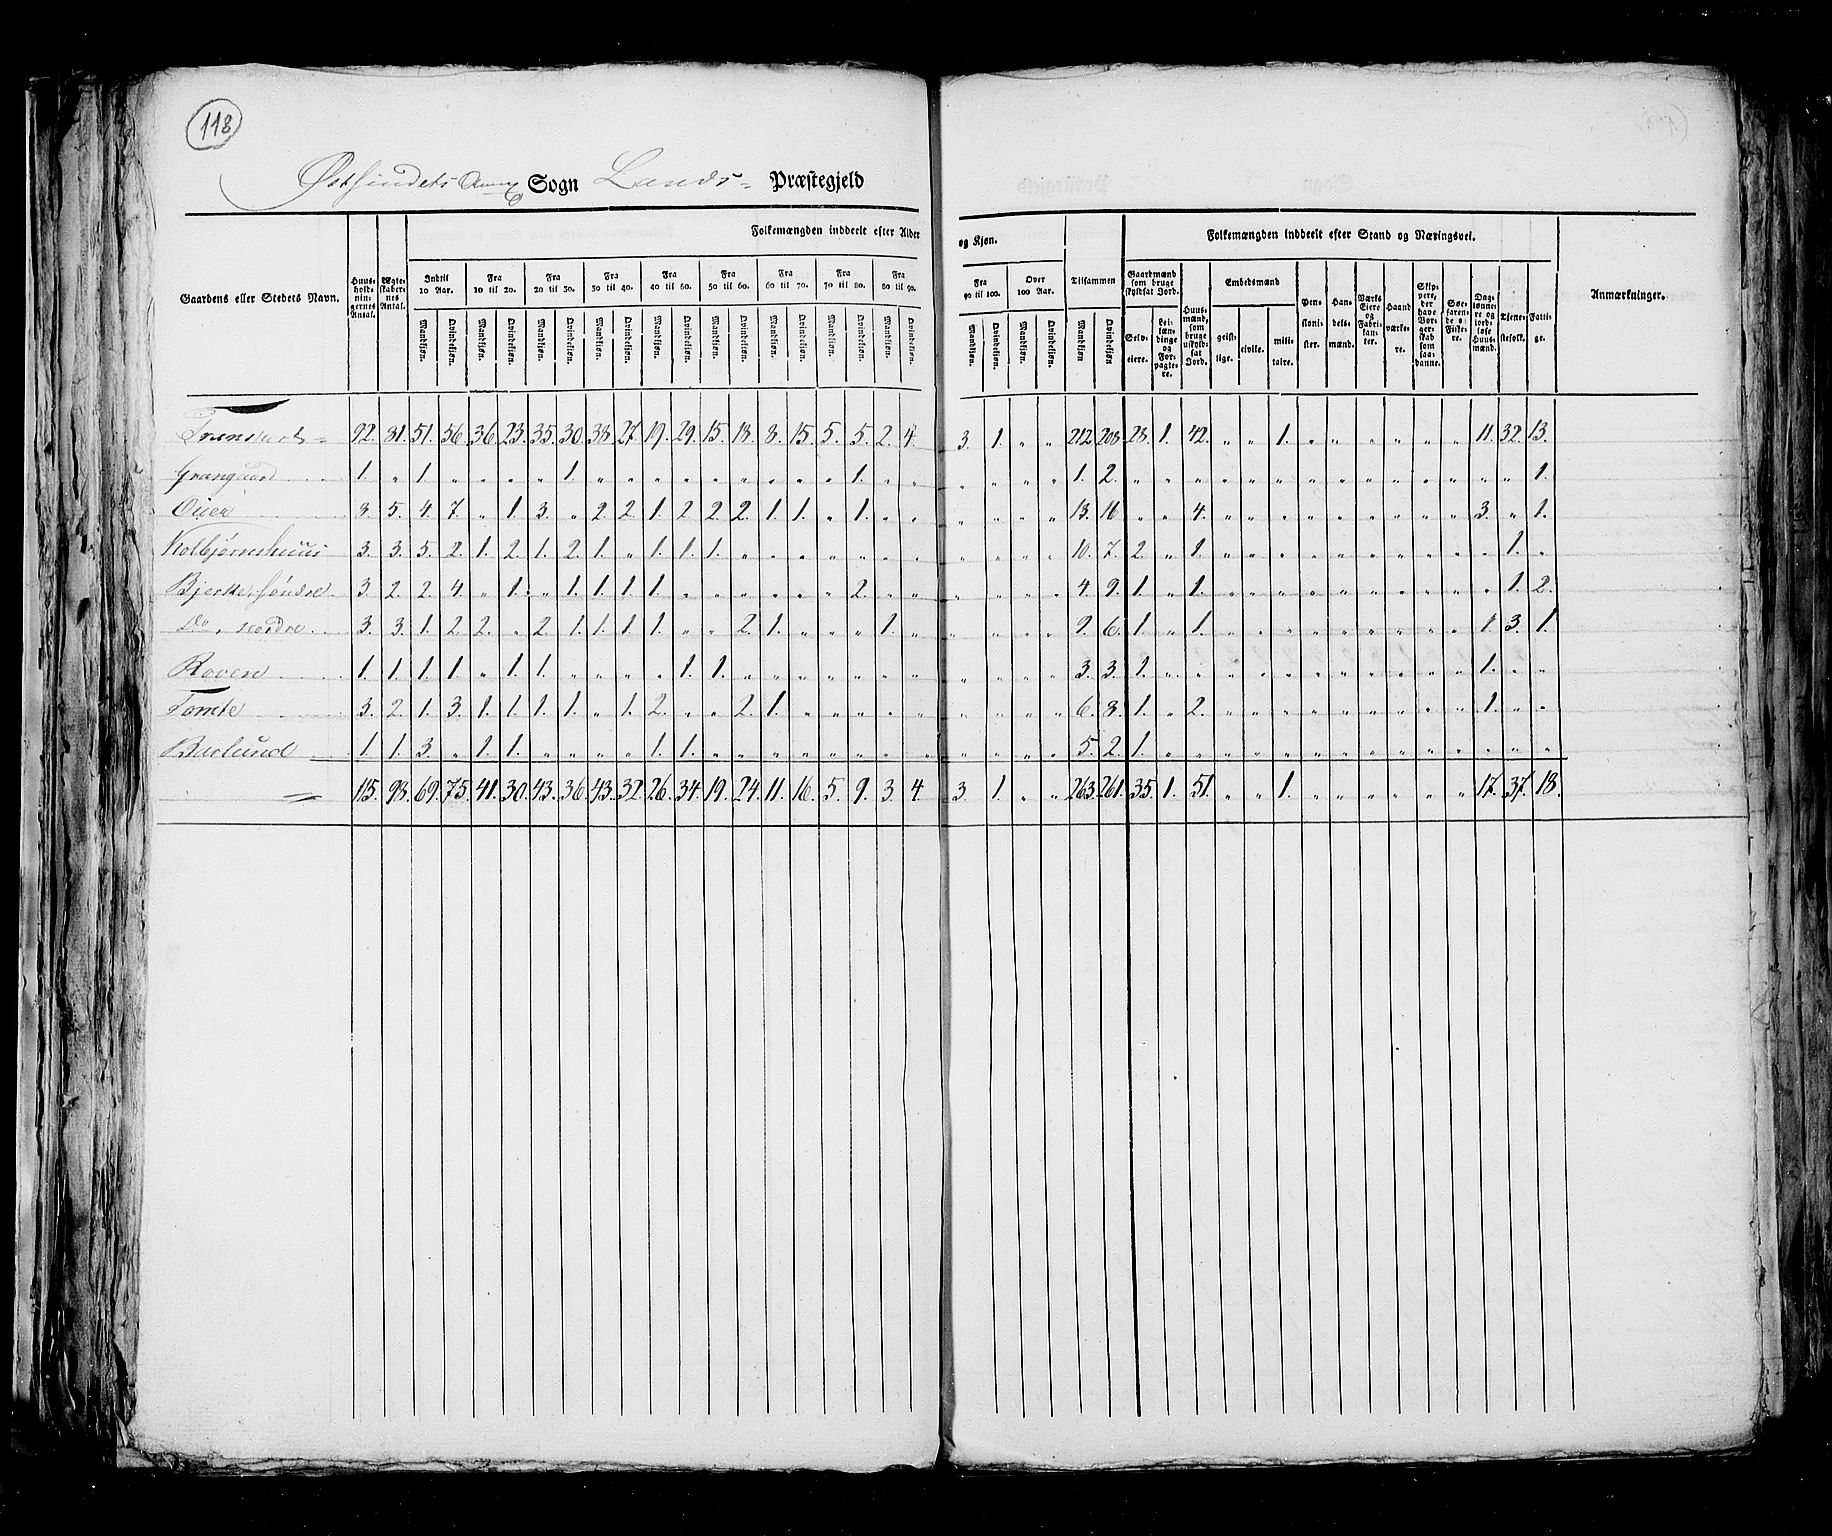 118
Østsindets Annex Sogn Lands Præstegjeld
Gaardens eller Stedets Navn. Huus-holdnin-gernes Antal. Ægte-skaber-nes Antal. Folkemængden inddeelt efter Alder og Kjøn. Folkemængden inddeelt efter Stand og Næringsvei. Anmærkninger.
Indtil 10 Aar. Fra 10 til 20. Fra 20 til 30. Fra 30 til 40. Fra 40 til 50. Fra 50 til 60. Fra 60 til 70. Fra 70 til 80. Fra 80 til 90. Fra 90 til 100. Over 100 Aar. Tilsammen Gaardmænd som bruge skyldsat Jord. Huus-mænd, som bruge uskyld-sat Jord. Embedsmænd Pen-sioni-ster. Han-dels-mænd. Værks Eiere og Fabri-kan-ter. Haand værke-re. Skip-pere, der have Bor-ger-skab som saa-danne. Søe-farende Fiske-re. Dag-lønne-re og jord-løse Huus-mænd. Tjene-stefolk. Fatti-ge.
Mandkjøn. Qvindekjøn. Mandkjøn. Qvindekjøn. Mandkjøn. Qvindekjøn. Mandkjøn. Qvindekjøn. Mandkjøn. Qvindekjøn. Mandkjøn. Qvindekjøn. Mandkjøn. Qvindekjøn. Mandkjøn. Qvindekjøn. Mandkjøn. Qvindekjøn. Mandkjøn. Qvindekjøn. Mandkjøn. Qvindekjøn. Mandkjøn Qvindekjøn Selv-eiere. Lei-lændinge og For-pagte-re. geist-lige. civile. mili-taire.
Transport 92. 81. 51. 56. 36. 23. 35. 30. 38. 27. 19. 29. 15. 18. 8. 15. 5. 5. 2. 4. 3. 1. " " 212 208 28. 1. 42. " " 1. " " " " " " 11. 32. 13.
Grangaard 1. " 1. " " " " 1. " " " " " " " " " 1. " " " " " " 1. 2. " " " " " " " " " " " " " " 1.
Oüer 8. 5. 4. 7. " 1. 3. " 2. 2. 1. 2. 2. 2. 1. 1. " 1. " " " " " " 13. 16 " " 4. " " " " " " " " " 3. " 1.
Kolbjørnshuus 3. 3. 5. 2. 1. 2. 1. 2. 1. " 1. 1. 1. " " " " " " " " " " " 10. 7. 2. " 1. " " " " " " " " " " 1. "
Bjerke, søndre 3. 2. 2. 4. " 1. " 1. 1. 1. 1. " " " " " " 2. " " " " " " 4. 9. 1. " 1. " " " " " " " " " " 1. 2.
Do, nordre 3. 3. 1. 2. 2. " 2. 1. 1. 1. 1. " " 2. 1. " " " 1. " " " " " 9. 6. 1. " 1. " " " " " " " " " 1. 3. 1.
Roven 1. 1. 1. 1. " 1. 1. " " " " 1. 1. " " " " " " " " " " " 3. 3. 1. " " " " " " " " " " " 1. " "
Tomte 3. 2. 1. 3. 1. 1. 1. 1. " 1. 2. " " 2. 1. " " " " " " " " " 6. 8. 1. " 2. " " " " " " " " " 1. " "
Burlund 1. 1. 3. " 1. 1. " " " " 1. 1. " " " " " " " " " " " " 5. 2. 1. " " " " " " " " " " " " " "
115. 98. 69. 75. 41. 30. 43. 36. 43. 32. 26. 34. 19. 24. 11. 16. 5. 9. 3. 4. 3. 1. " " 263. 261. 35. 1. 51. " " 1. " " " " " " 17. 37. 18.